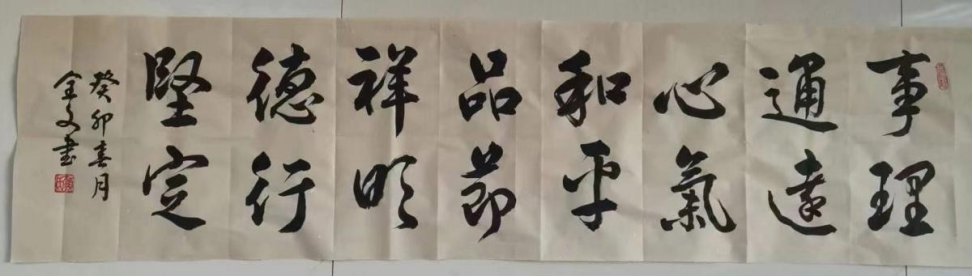 事理
通達
心氣
和平
品節
祥明
德行
堅定
癸卯春月
金文書